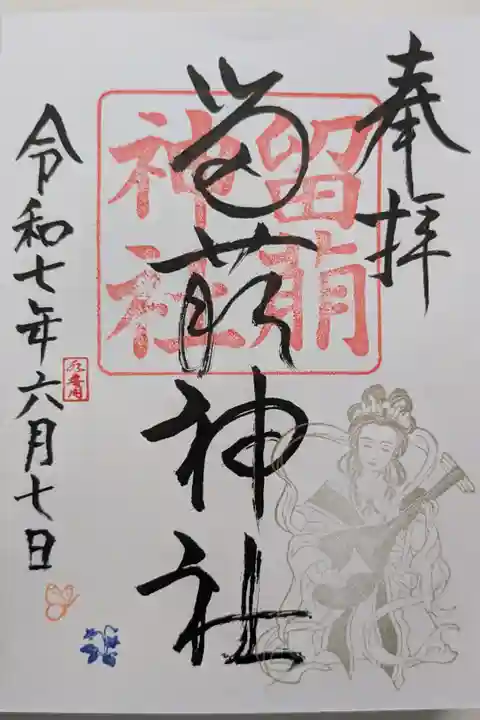 奉拝
留萌神社
留萌
神社
令和七年六月七日